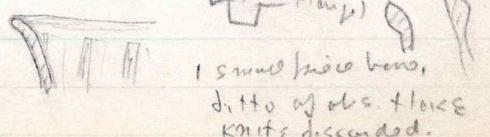 1 small piece bone,
ditto of obs. flake
knife discarded.